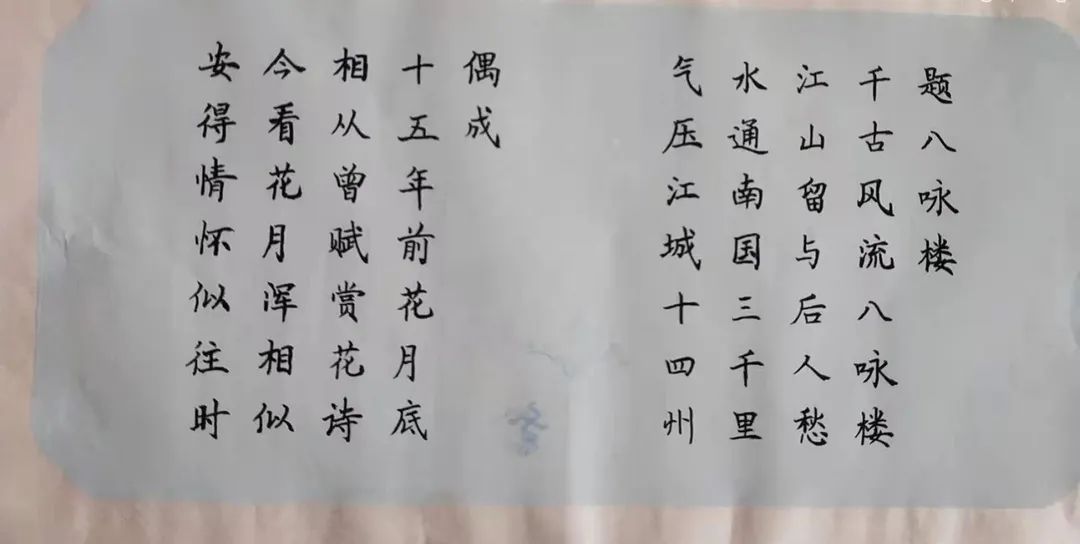 题八咏楼
千古风流八咏楼
江山留与后人愁
水通南国三千里
气压江城十四州
偶成
十五年前花月底
相从曾赋赏花诗
今看花月浑相似
安得情怀似往时